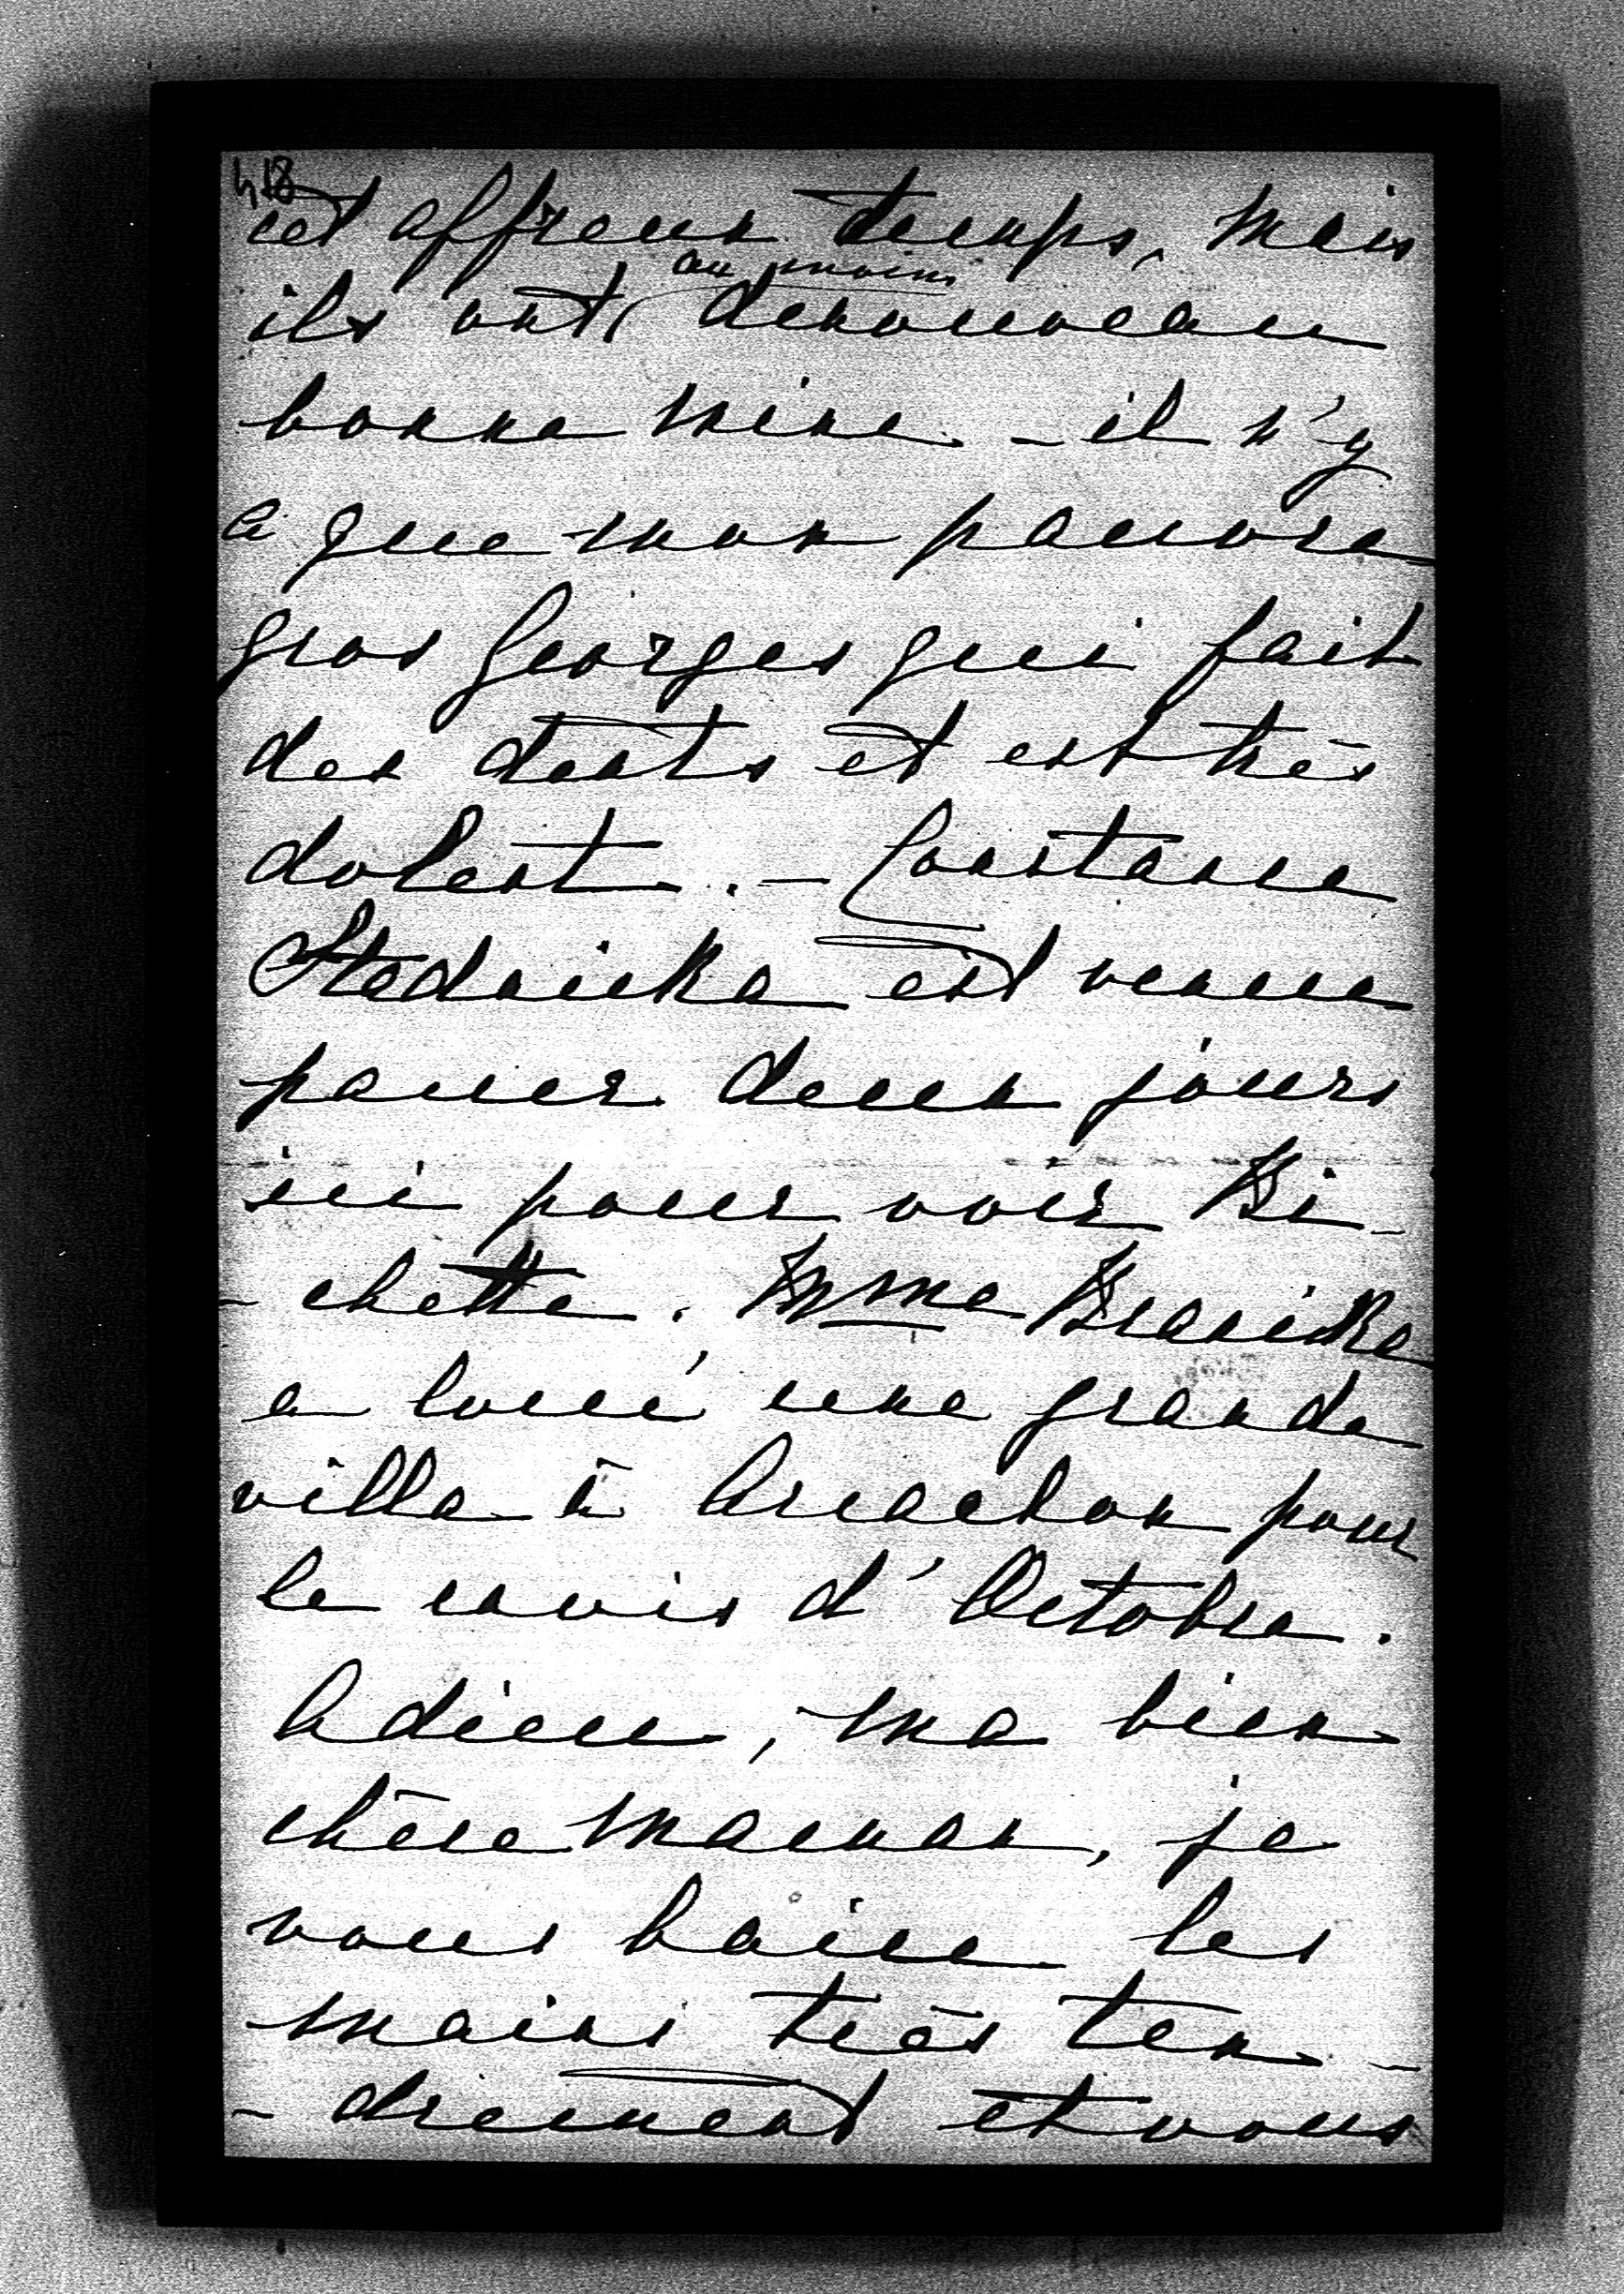 418
cet affreux temps, mais
au moins
ils ont denouveau
bonne mine. - il n'y
a que mon pauvre
gros Georges qui fait
des dents et est très
dolent. - Constance
est venue
passer deux jours
ici pour voir Bi-
- chette. Mme Branicka
a loué une grande
villa à Arcachon pour
le mois d'Octobre.
Adieu, ma bien
chère Maman, je
vous baise les
mains très ten-
- drement et vous